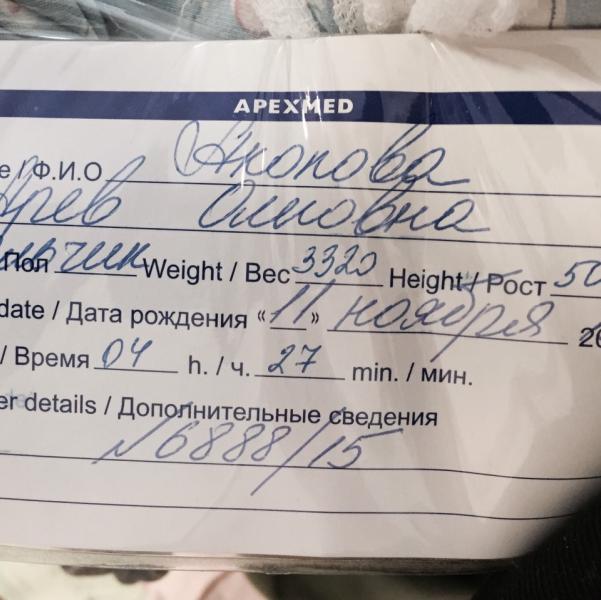 APEXMED
e / Ф.И.О Акопова
Арев Оликовна
Пол мальчик Weight / Вес 3320 Height / Рост 50
date / Дата рождения «11» ноября 20
/ Время 04 h. / ч. 27 min. / мин.
er details / Дополнительные сведения
№6888/15